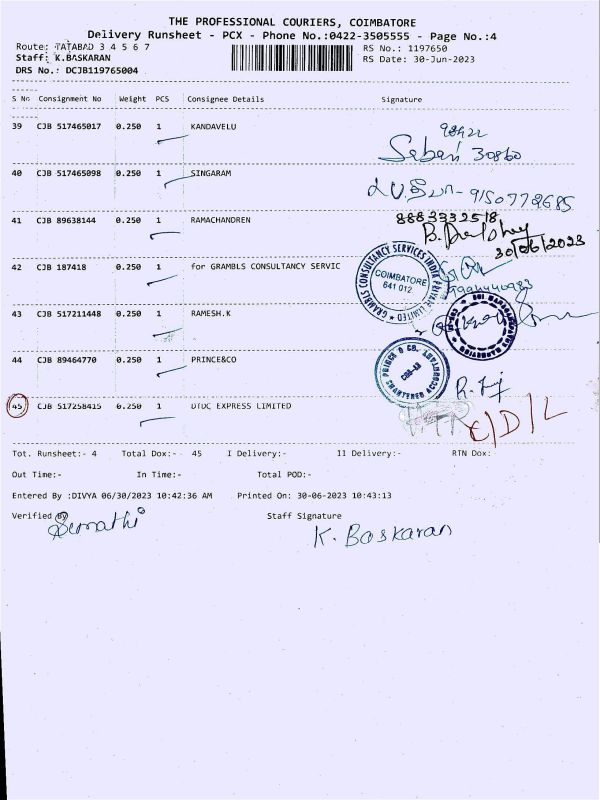 THE PROFESSIONAL COURIERS, COIMBATORE
Delivery Runsheet - PCX - Phone No.:0422-3505555 - Page No.:4
Route: TATABAD 3 4 5 6 7
RS No.: 1197650
Staff: K.BASKARAN
RS Date: 30-Jun-2023
DRS No.: DCJB119765004
S No Consignment No Weight PCS Consignee Details Signature
39 CJB 517465017 0.250 1 KANDAVELU
Sabari 30860
40 CJB 517465098 0.250 1 SINGARAM
9150772685
41 CJB 89638144 0.250 1 RAMACHANDREN 8883332518
30/06/2023
42 CJB 187418 0.250 1 for GRAMBLS CONSULTANCY SERVIC
GRAMBLS CONSULTANCY SERVICES INDIA PRIVATE LIMITED
COIMBATORE
641 012
43 CJB 517211448 0.250 1 RAMESH.K
44 CJB 89464770 0.250 1 PRINCE&CO
PRINCE & CO.
CHARTERED ACCOUNTANTS
45 CJB 517258415 0.250 1 DTDC EXPRESS LIMITED
C/D/L
Tot. Runsheet:- 4 Total Dox:- 45 I Delivery:- II Delivery:- RTN Dox:
Out Time:- In Time:- Total POD:-
Entered By :DIVYA 06/30/2023 10:42:36 AM Printed On: 30-06-2023 10:43:13
Verified By Staff Signature
Sumathi K. Baskaran